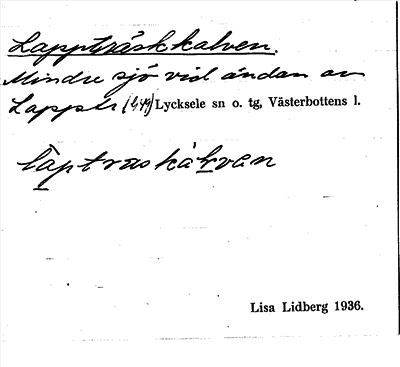 Lappträskkalven.
Mindre sjö vid ändan av
Lapptr Lycksele sn o. tg, Västerbottens l.
làptraskàlvən
Lisa Lidberg 1936.